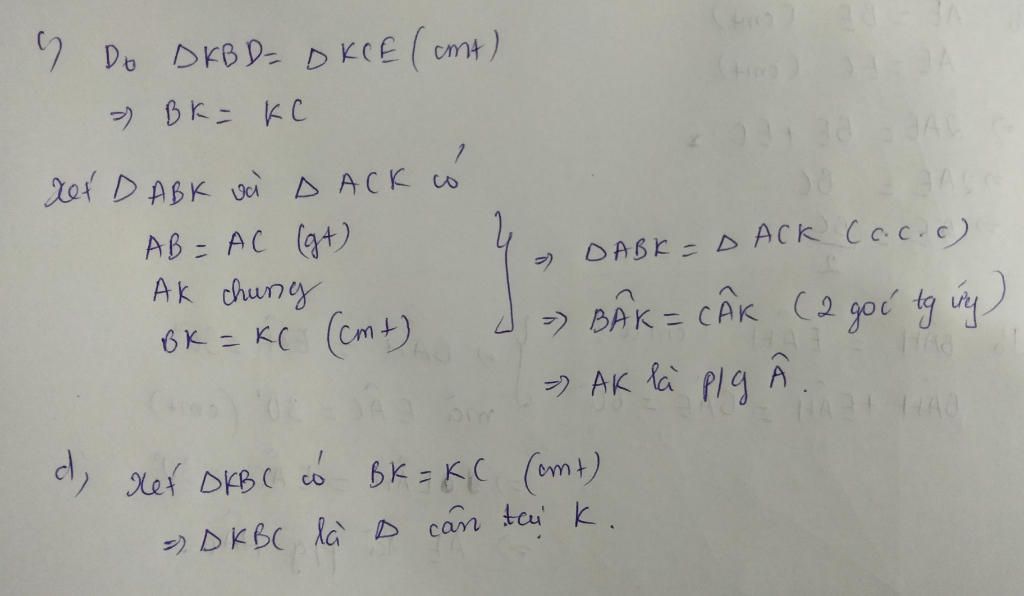 c) Do ΔKBD = ΔKCE (cmt)
=> BK = KC
Xét ΔABK và ΔACK có
AB = AC (gt)
AK chung
BK = KC (cmt)
=> ΔABK = ΔACK (c.c.c)
=> BÂK = CÂK (2 góc tg ứng)
=> AK là p/g Â.
d, Xét ΔKBC có BK = KC (cmt)
=> ΔKBC là Δ cân tại K.